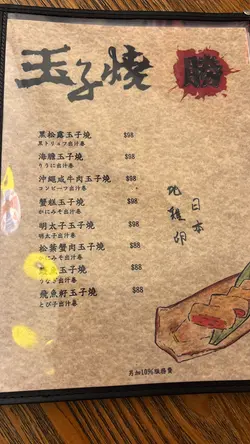 玉子燒 勝
黑松露玉子燒 $98
黒トリュフ出汁巻
海膽玉子燒 $98
うに出汁巻
沖繩咸牛肉玉子燒 $98
コンビーフ出汁巻
蟹糕玉子燒 $98
かにみそ出汁巻
明太子玉子燒 $98
明太子出汁巻
松葉蟹肉玉子燒 $88
かにみそ出汁巻
魚玉子燒 $88
うなぎ出汁巻
飛魚籽玉子燒 $88
とび子出汁巻
日本
地雞卵
另加10%服務費